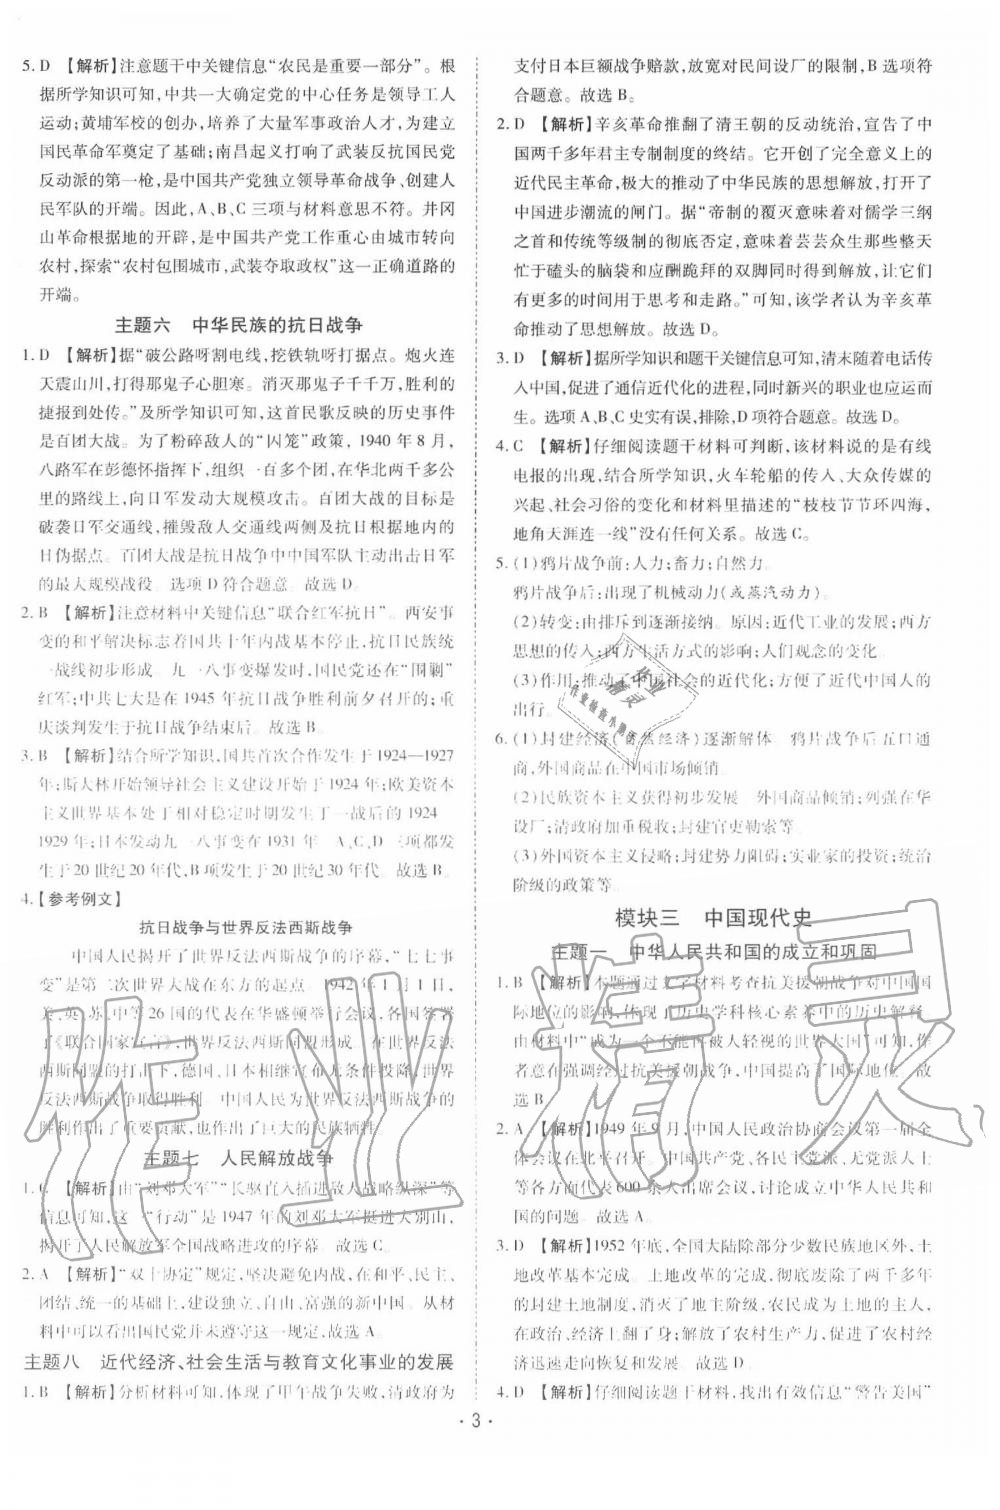 5. D 【解析】注意题干中关键信息“农民是重要一部分”。根
据所学知识可知，中共一大确定党的中心任务是领导工人
运动；黄埔军校的创办，培养了大量军事政治人才，为建立
国民革命军奠定了基础；南昌起义打响了武装反抗国民党
反动派的第一枪，是中国共产党独立领导革命战争、创建人
民军队的开端。因此，A、B、C 三项与材料意思不符。井冈
山革命根据地的开辟，是中国共产党工作重心由城市转向
农村，探索“农村包围城市，武装夺取政权”这一正确道路的
开端。
主题六 中华民族的抗日战争
1. D 【解析】据“破公路呀割电线，挖铁轨呀打据点。炮火连
天震山川，打得那鬼子心胆寒。消灭那鬼子千千万，胜利的
捷报到处传。”及所学知识可知，这首民歌反映的历史事件
是百团大战。为了粉碎敌人的“囚笼”政策，1940 年 8 月，
八路军在彭德怀指挥下，组织一百多个团，在华北两千多公
里的路线上，向日军发动大规模攻击。百团大战的目标是
破袭日军交通线，摧毁敌人交通线两侧及抗日根据地内的
日伪据点。百团大战是抗日战争中中国军队主动出击日军
的最大规模战役。选项 D 符合题意。故选 D。
2. B 【解析】注意材料中关键信息“联合红军抗日”。西安事
变的和平解决标志着国共十年内战基本停止，抗日民族统
一战线初步形成。九一八事变爆发时，国民党还在“围剿”
红军；中共七大是在 1945 年抗日战争胜利前夕召开的；重
庆谈判发生于抗日战争结束后。故选 B。
3. B 【解析】结合所学知识，国共首次合作发生于 1924—1927
年；斯大林开始领导社会主义建设开始于 1924 年；欧美资本
主义世界基本处于相对稳定时期发生于一战后的 1924—
1929 年；日本发动九一八事变在 1931 年。A、C、D 三项都发
生于 20 世纪 20 年代，B 项发生于 20 世纪 30 年代。故选 B。
4. 【参考例文】
抗日战争与世界反法西斯战争
中国人民揭开了世界反法西斯战争的序幕，“七七事
变”是第二次世界大战在东方的起点。1942 年 1 月 1 日，
美、英、苏、中等 26 国的代表在华盛顿举行会议，各国签署
了《联合国家宣言》，世界反法西斯同盟形成。在世界反法
西斯同盟的打击下，德国、日本相继宣布无条件投降，世界
反法西斯战争取得胜利。中国人民为世界反法西斯战争的
胜利作出了重要贡献，也作出了巨大的民族牺牲。
主题七 人民解放战争
1. C 【解析】由“刘邓大军”“长驱直入插进敌人战略纵深”等
信息可知，这一“行动”是 1947 年的刘邓大军挺进大别山，
揭开了人民解放军全国战略进攻的序幕。故选 C。
2. A 【解析】“双十协定”规定，坚决避免内战，在和平、民主、
团结、统一的基础上，建设独立、自由、富强的新中国。从材
料中可以看出国民党并未遵守这一规定，故选 A。
主题八 近代经济、社会生活与教育文化事业的发展
1. B 【解析】分析材料可知，体现了甲午战争失败，清政府为
支付日本巨额战争赔款，放宽对民间设厂的限制，B 选项符
合题意。故选 B。
2. D 【解析】辛亥革命推翻了清王朝的反动统治，宣告了中
国两千多年君主专制制度的终结。它开创了完全意义上的
近代民主革命，极大的推动了中华民族的思想解放，打开了
中国进步潮流的闸门。据“帝制的覆灭意味着对儒学三纲
之首和传统等级制的彻底否定，意味着芸芸众生那些整天
忙于磕头的脑袋和应酬跪拜的双脚同时得到解放，让他们
有更多的时间用于思考和走路。”可知，该学者认为辛亥革
命推动了思想解放。故选 D。
3. D 【解析】据所学知识和题干关键信息可知，清末随着电话传
入中国，促进了通信近代化的进程，同时新兴的职业也应运而
生。选项 A、B、C 史实有误，排除，D 项符合题意。故选 D。
4. C 【解析】仔细阅读题干材料可判断，该材料说的是有线
电报的出现，结合所学知识，火车轮船的传入、大众传媒的
兴起、社会习俗的变化和材料里描述的“枝枝节节环四海，
地角天涯连一线”没有任何关系。故选 C。
5. (1)鸦片战争前：人力；畜力；自然力。
鸦片战争后：出现了机械动力(或蒸汽动力)。
(2)转变：由排斥到逐渐接纳。原因：近代工业的发展；西方
思想的传入；西方生活方式的影响；人们观念的变化。
(3)作用：推动了中国社会的近代化；方便了近代中国人的
出行。
6. (1)封建经济(自然经济)逐渐解体。鸦片战争后五口通
商，外国商品在中国市场倾销。
(2)民族资本主义获得初步发展。外国商品倾销；列强在华
设厂；清政府加重税收；封建官吏勒索等。
(3)外国资本主义侵略；封建势力阻碍；实业家的投资；统治
阶级的政策等。
模块三 中国现代史
主题一 中华人民共和国的成立和巩固
1. B 【解析】本题通过文字材料考查抗美援朝战争对中国国
际地位的影响，体现了历史学科核心素养中的历史解释。
由材料中“成为一个不能再被人轻视的世界大国”可知，作
者意在强调经过抗美援朝战争，中国提高了国际地位。故
选 B。
2. A 【解析】1949 年 9 月，中国人民政治协商会议第一届全
体会议在北平召开。中国共产党、各民主党派、无党派人士
等各方面代表 600 余人出席会议，讨论成立中华人民共和
国的问题。故选 A。
3. D 【解析】1952 年底，全国大陆除部分少数民族地区外，土
地改革基本完成。土地改革的完成，彻底废除了两千多年
的封建土地制度，消灭了地主阶级，农民成为土地的主人，
在政治、经济上翻了身；解放了农村生产力，促进了农村经
济迅速走向恢复和发展。故选 D。
4. D 【解析】仔细阅读题干材料，找出有效信息“警告美国”
· 3 ·
作业精灵
作业检查小助手
作业精灵